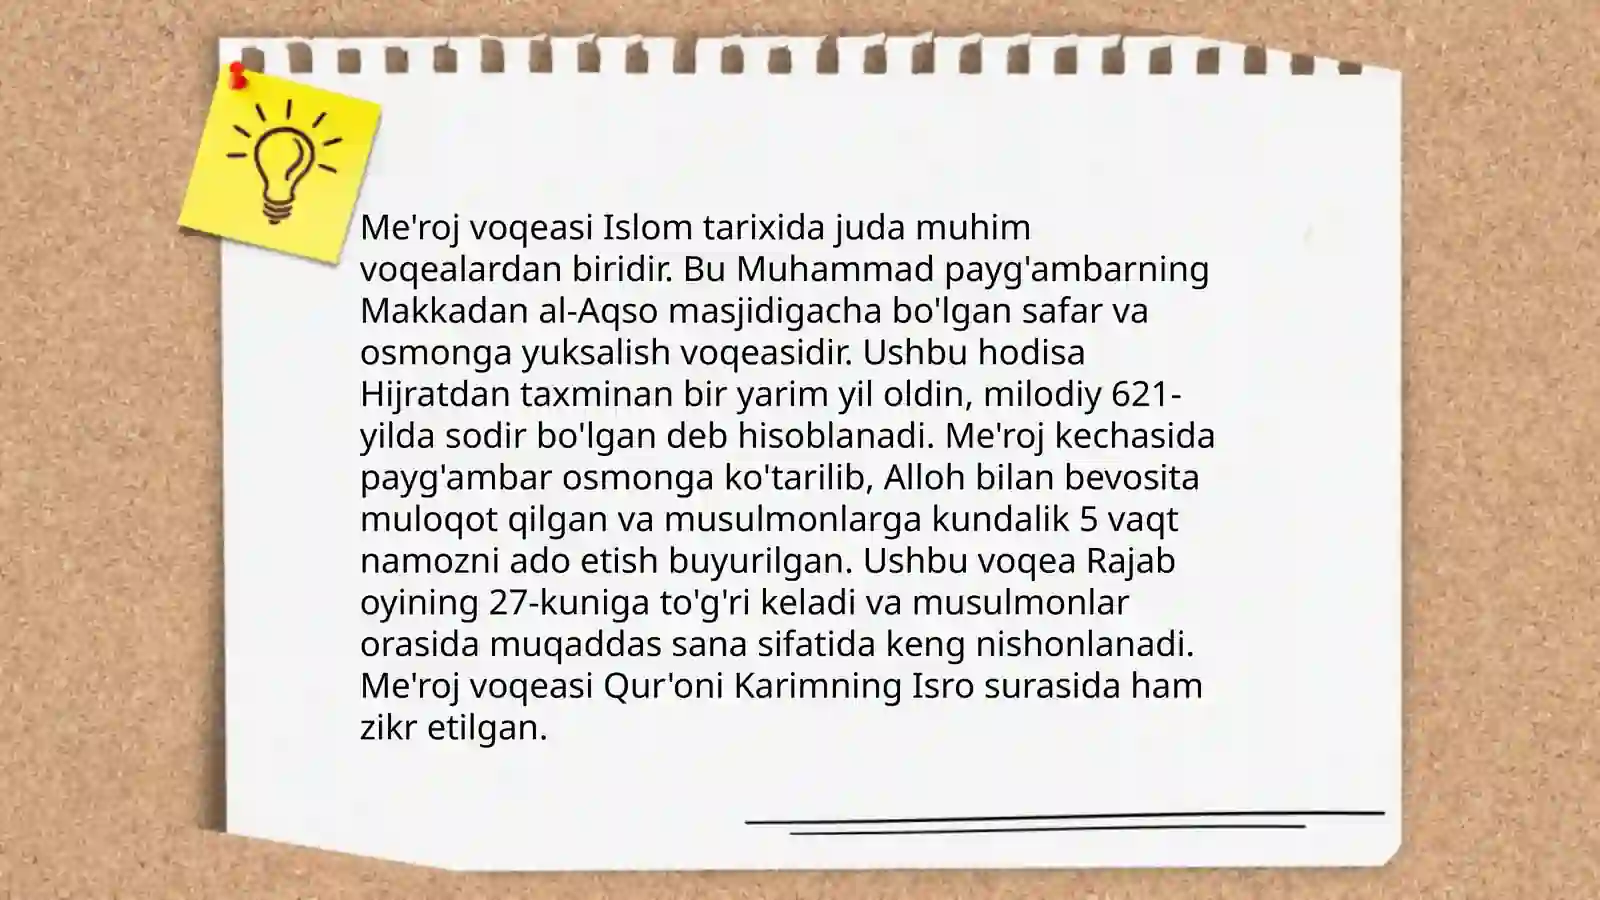 Me'roj voqeasi Islom tarixida juda muhim
voqealardan biridir. Bu Muhammad payg'ambarning
Makkadan al-Aqso masjidigacha bo'lgan safar va
osmonga yuksalish voqeasidir. Ushbu hodisa
Hijratdan taxminan bir yarim yil oldin, milodiy 621-
yilda sodir bo'lgan deb hisoblanadi. Me'roj kechasida
payg'ambar osmonga ko'tarilib, Alloh bilan bevosita
muloqot qilgan va musulmonlarga kundalik 5 vaqt
namozni ado etish buyurilgan. Ushbu voqea Rajab
oyining 27-kuniga to'g'ri keladi va musulmonlar
orasida muqaddas sana sifatida keng nishonlanadi.
Me'roj voqeasi Qur'oni Karimning Isro surasida ham
zikr etilgan.